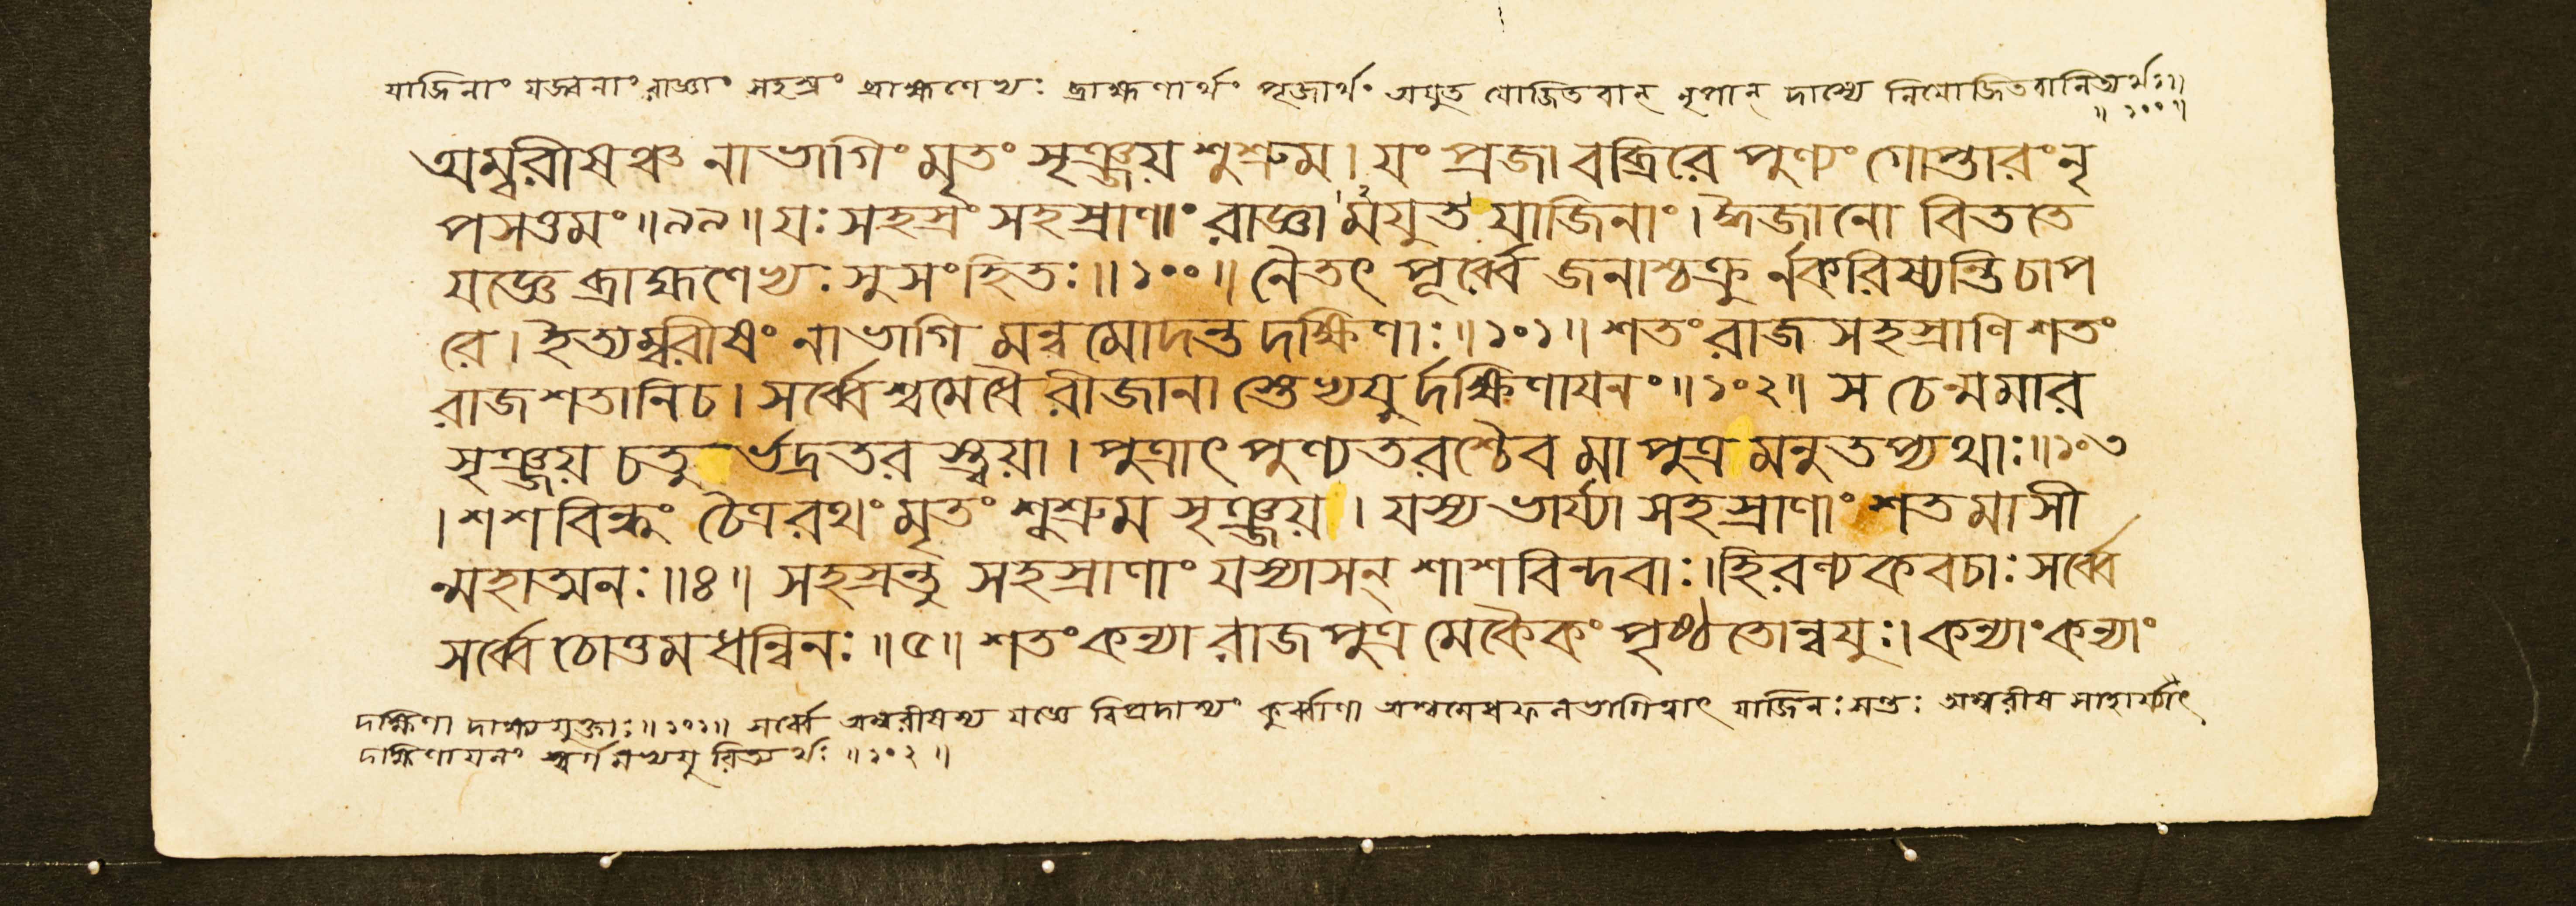 যাজিনাং যজ্বনাং রাজ্ঞাং সহস্রং ব্রাহ্মণেভ্যঃ ব্রাহ্মণার্থং পূজার্থং অযুত যোজিতবান নৃপান দাস্যে নিযোজিতবানিত্যর্থঃ॥
॥ ১০০ ॥
অম্বরীষঞ্চ নাভাগিং মৃতং সৃঞ্জয় শুশ্রুম। যং প্রজা বব্রিরে পুণ্যং গোপ্তারং নৃ
পসত্তমং ॥৯৯॥ যঃ সহস্রং সহস্রাণাং রাজ্ঞামযুত যাজিনাং। ঈজানো বিততে
যজ্ঞে ব্রাহ্মণেভ্যঃ সুসংহিতঃ॥১০০॥ নৈতৎ পূর্ব্বে জনাশ্চক্রুর্নকরিষ্যন্তি চাপ
রে। ইত্যম্বরীষং নাভাগি মন্বমোদন্ত দক্ষিণাঃ॥১০১॥ শতং রাজ সহস্রাণি শতং
রাজশতানিচ। সর্ব্বেশ্বমেধৈরীজানা স্তেভ্যযুর্দক্ষিণাযনং॥১০২॥ স চেন্মমার
সৃঞ্জয় চতুর্ভদ্রতর স্ত্বয়া। পুত্রাৎ পুণ্যতরশ্চৈব মা পুত্র মনুতপ্যথাঃ॥১০৩
। শশবিন্দুং চৈত্ররথং মৃতং শুশ্রুম সৃঞ্জয়। যস্য ভার্য্যা সহস্রাণাং শতমাসী
ন্মহাত্মনঃ॥৪॥ সহস্রন্তু সহস্রাণাং যস্যাসন্ শাশবিন্দবাঃ। হিরণ্যকবচাঃ সর্ব্বে
সর্ব্বে চোত্তমধন্বিনঃ॥৫॥ শতং কন্যা রাজপুত্র মেকৈকং পৃষ্ঠতোন্বযুঃ। কন্যাং কন্যাং
দক্ষিণা দাক্ষ্যযুক্তাঃ॥১০১॥ সর্ব্বে অম্বরীষস্য যজ্ঞে বিপ্রদাস্যং কুর্ব্বাণা অশ্বমেধফলভাগিত্বাৎ যাজিনঃ সন্তঃ অম্বরীষ সাহায্যাৎ
দক্ষিণাযনং স্বর্গমভ্যযুরিত্যর্থঃ ॥১০২॥